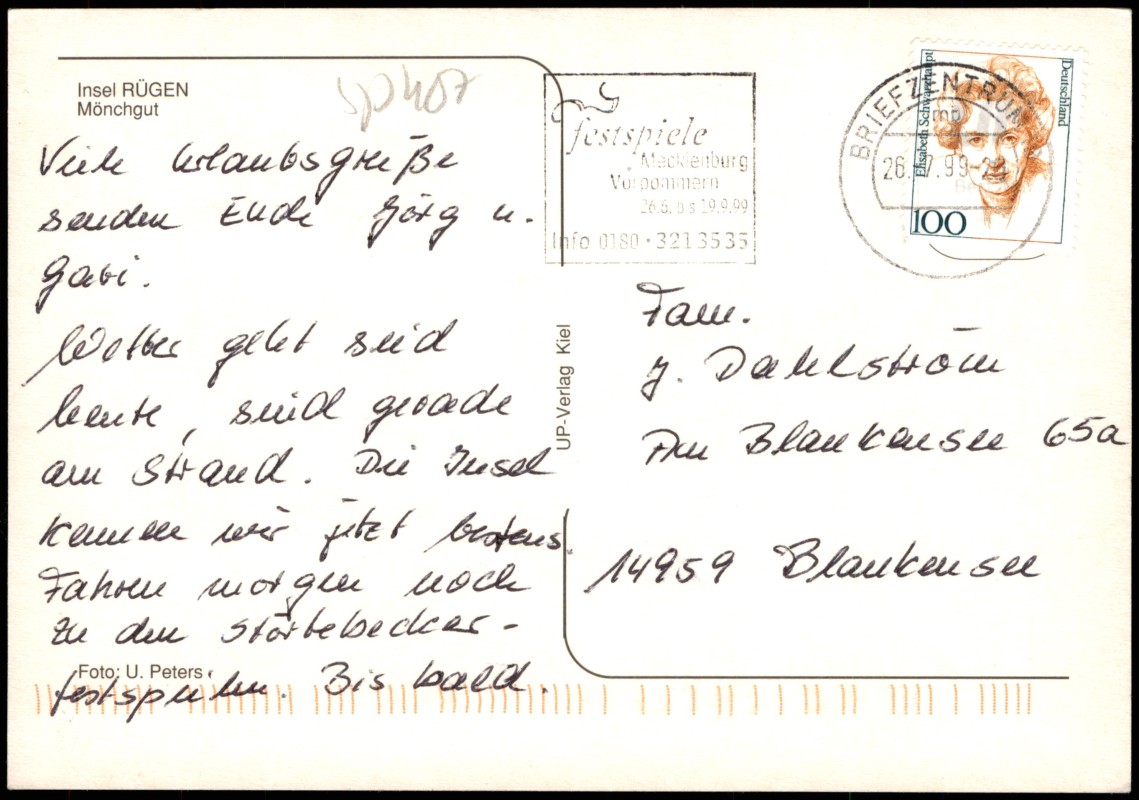 Insel RÜGEN
Mönchgut
Viele Urlaubsgrüße
senden Euch Jörg u.
Gabi.
Wetter geht seid
heute, sind gerade
am Strand. Die Insel
kennen wir jetzt bestens
Fahren morgen noch
zu den Störtebecker-
festspielen. Bis bald.
Foto: U. Peters
UP-Verlag Kiel
festspiele
Mecklenburg
Vorpommern
26.6. bis 19.9.99
Info 0180 · 3213535
BRIEFZENTRUM
26. 7.99-21
Elisabeth Schwarzhaupt
Deutschland
100
Fam.
J. Dahlström
Am Blankensee 65a
14959 Blankensee